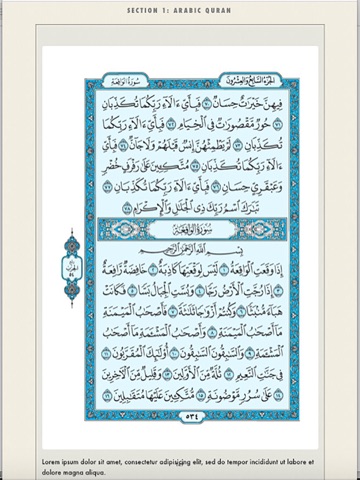 SECTION 1: ARABIC QURAN
الجزء السابع والعشرون
سورة الواقعة
فِيهِنَّ خَيْرَٰتٌ حِسَانٌ ٧٠ فَبِأَيِّ ءَالَآءِ رَبِّكُمَا تُكَذِّبَانِ
٧١ حُورٌ مَّقْصُورَٰتٌ فِي ٱلْخِيَامِ ٧٢ فَبِأَيِّ ءَالَآءِ رَبِّكُمَا
تُكَذِّبَانِ ٧٣ لَمْ يَطْمِثْهُنَّ إِنسٌ قَبْلَهُمْ وَلَا جَآنٌّ ٧٤ فَبِأَيِّ
ءَالَآءِ رَبِّكُمَا تُكَذِّبَانِ ٧٥ مُتَّكِـِٔينَ عَلَىٰ رَفْرَفٍ خُضْرٍ
وَعَبْقَرِيٍّ حِسَانٍ ٧٦ فَبِأَيِّ ءَالَآءِ رَبِّكُمَا تُكَذِّبَانِ ٧٧
تَبَٰرَكَ ٱسْمُ رَبِّكَ ذِي ٱلْجَلَٰلِ وَٱلْإِكْرَامِ ٧٨
سورة الواقعة
بِسْمِ ٱللَّهِ ٱلرَّحْمَٰنِ ٱلرَّحِيمِ
إِذَا وَقَعَتِ ٱلْوَاقِعَةُ ١ لَيْسَ لِوَقْعَتِهَا كَاذِبَةٌ ٢ خَافِضَةٌ رَّافِعَةٌ
٣ إِذَا رُجَّتِ ٱلْأَرْضُ رَجًّا ٤ وَبُسَّتِ ٱلْجِبَالُ بَسًّا ٥ فَكَانَتْ
هَبَآءً مُّنۢبَثًّا ٦ وَكُنتُمْ أَزْوَٰجًا ثَلَٰثَةً ٧ فَأَصْحَٰبُ ٱلْمَيْمَنَةِ
مَآ أَصْحَٰبُ ٱلْمَيْمَنَةِ ٨ وَأَصْحَٰبُ ٱلْمَشْـَٔمَةِ مَآ أَصْحَٰبُ
ٱلْمَشْـَٔمَةِ ٩ وَٱلسَّٰبِقُونَ ٱلسَّٰبِقُونَ ١٠ أُو۟لَٰٓئِكَ ٱلْمُقَرَّبُونَ ١١
فِي جَنَّٰتِ ٱلنَّعِيمِ ١٢ ثُلَّةٌ مِّنَ ٱلْأَوَّلِينَ ١٣ وَقَلِيلٌ مِّنَ ٱلْءَاخِرِينَ
١٤ عَلَىٰ سُرُرٍ مَّوْضُونَةٍ ١٥ مُّتَّكِـِٔينَ عَلَيْهَا مُتَقَٰبِلِينَ ١٦
الحزب
٥٤
٥٣٤
Lorem ipsum dolor sit amet, consectetur adipisicing elit, sed do tempor incididunt ut labore et
dolore magna aliqua.